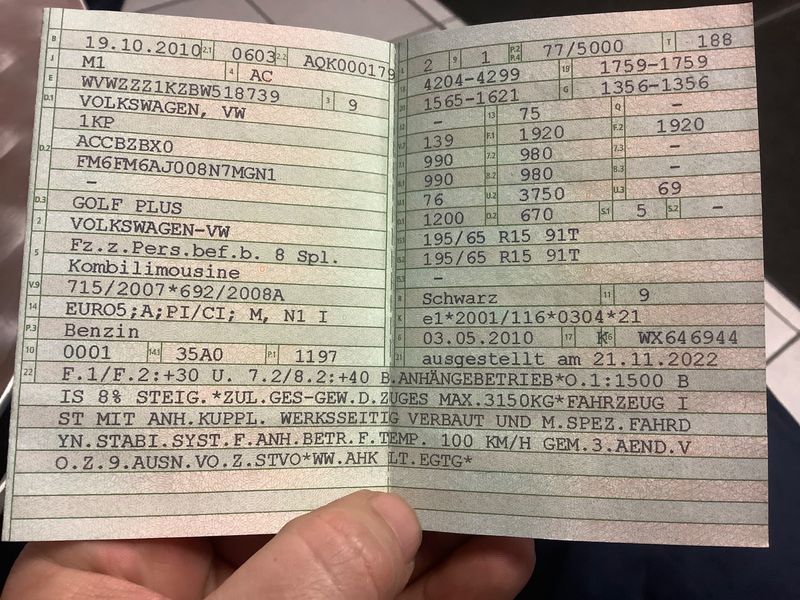 B 19.10.2010 2.1 0603 2.2 AQK000179
J M1 4 AC
E WVWZZZ1KZBW518739 3 9
D.1 VOLKSWAGEN, VW
1KP
D.2 ACCBZBX0
FM6FM6AJ008N7MGN1
–
D.3 GOLF PLUS
2 VOLKSWAGEN-VW
5 Fz.z.Pers.bef.b. 8 Spl.
Kombilimousine
V.9 715/2007*692/2008A
14 EURO5;A;PI/CI; M, N1 I
P.3 Benzin
10 0001 14.1 35A0 P.1 1197
L 2 9 1 P.2 P.4 77/5000 T 188
18 4204-4299 19 1759-1759
20 1565-1621 G 1356-1356
– 13 75 Q –
V.7 139 F.1 1920 F.2 1920
7.1 990 7.2 980 7.3 –
8.1 990 8.2 980 8.3 –
U.1 76 U.2 3750 U.3 69
O.1 1200 O.2 670 S.1 5 S.2 –
15.1 195/65 R15 91T
15.2 195/65 R15 91T
15.3 –
R Schwarz 11 9
K e1*2001/116*0304*21
6 03.05.2010 17 K 16 WX646944
21 ausgestellt am 21.11.2022
22 F.1/F.2:+30 U. 7.2/8.2:+40 B.ANHÄNGEBETRIEB*O.1:1500 B
IS 8% STEIG.*ZUL.GES-GEW.D.ZUGES MAX.3150KG*FAHRZEUG I
ST MIT ANH.KUPPL. WERKSSEITIG VERBAUT UND M.SPEZ.FAHRD
YN.STABI.SYST.F.ANH.BETR.F.TEMP. 100 KM/H GEM.3.AEND.V
O.Z.9.AUSN.VO.Z.STVO*WW.AHK LT.EGTG*